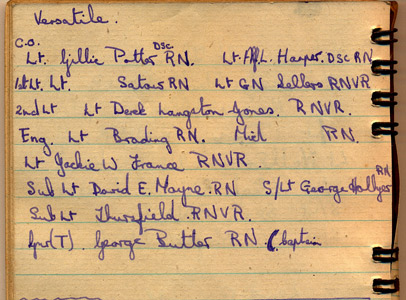 Versatile.
C.O.
Lt. Gillie Potter DSC RN. Lt. A.J.L. Harper. DSC RN
1st Lt. Lt. Satow RN Lt GN Sellers RNVR
2nd Lt Lt Derek Langston Jones. RNVR.
Eng. Lt Brading RN. Mid RN.
Lt Jackie W France RNVR.
Sub Lt David E. Mayne. RN S/Lt George Hollyer RN
Sub Lt Thursfield. RNVR.
(T). George Butter RN (Captain